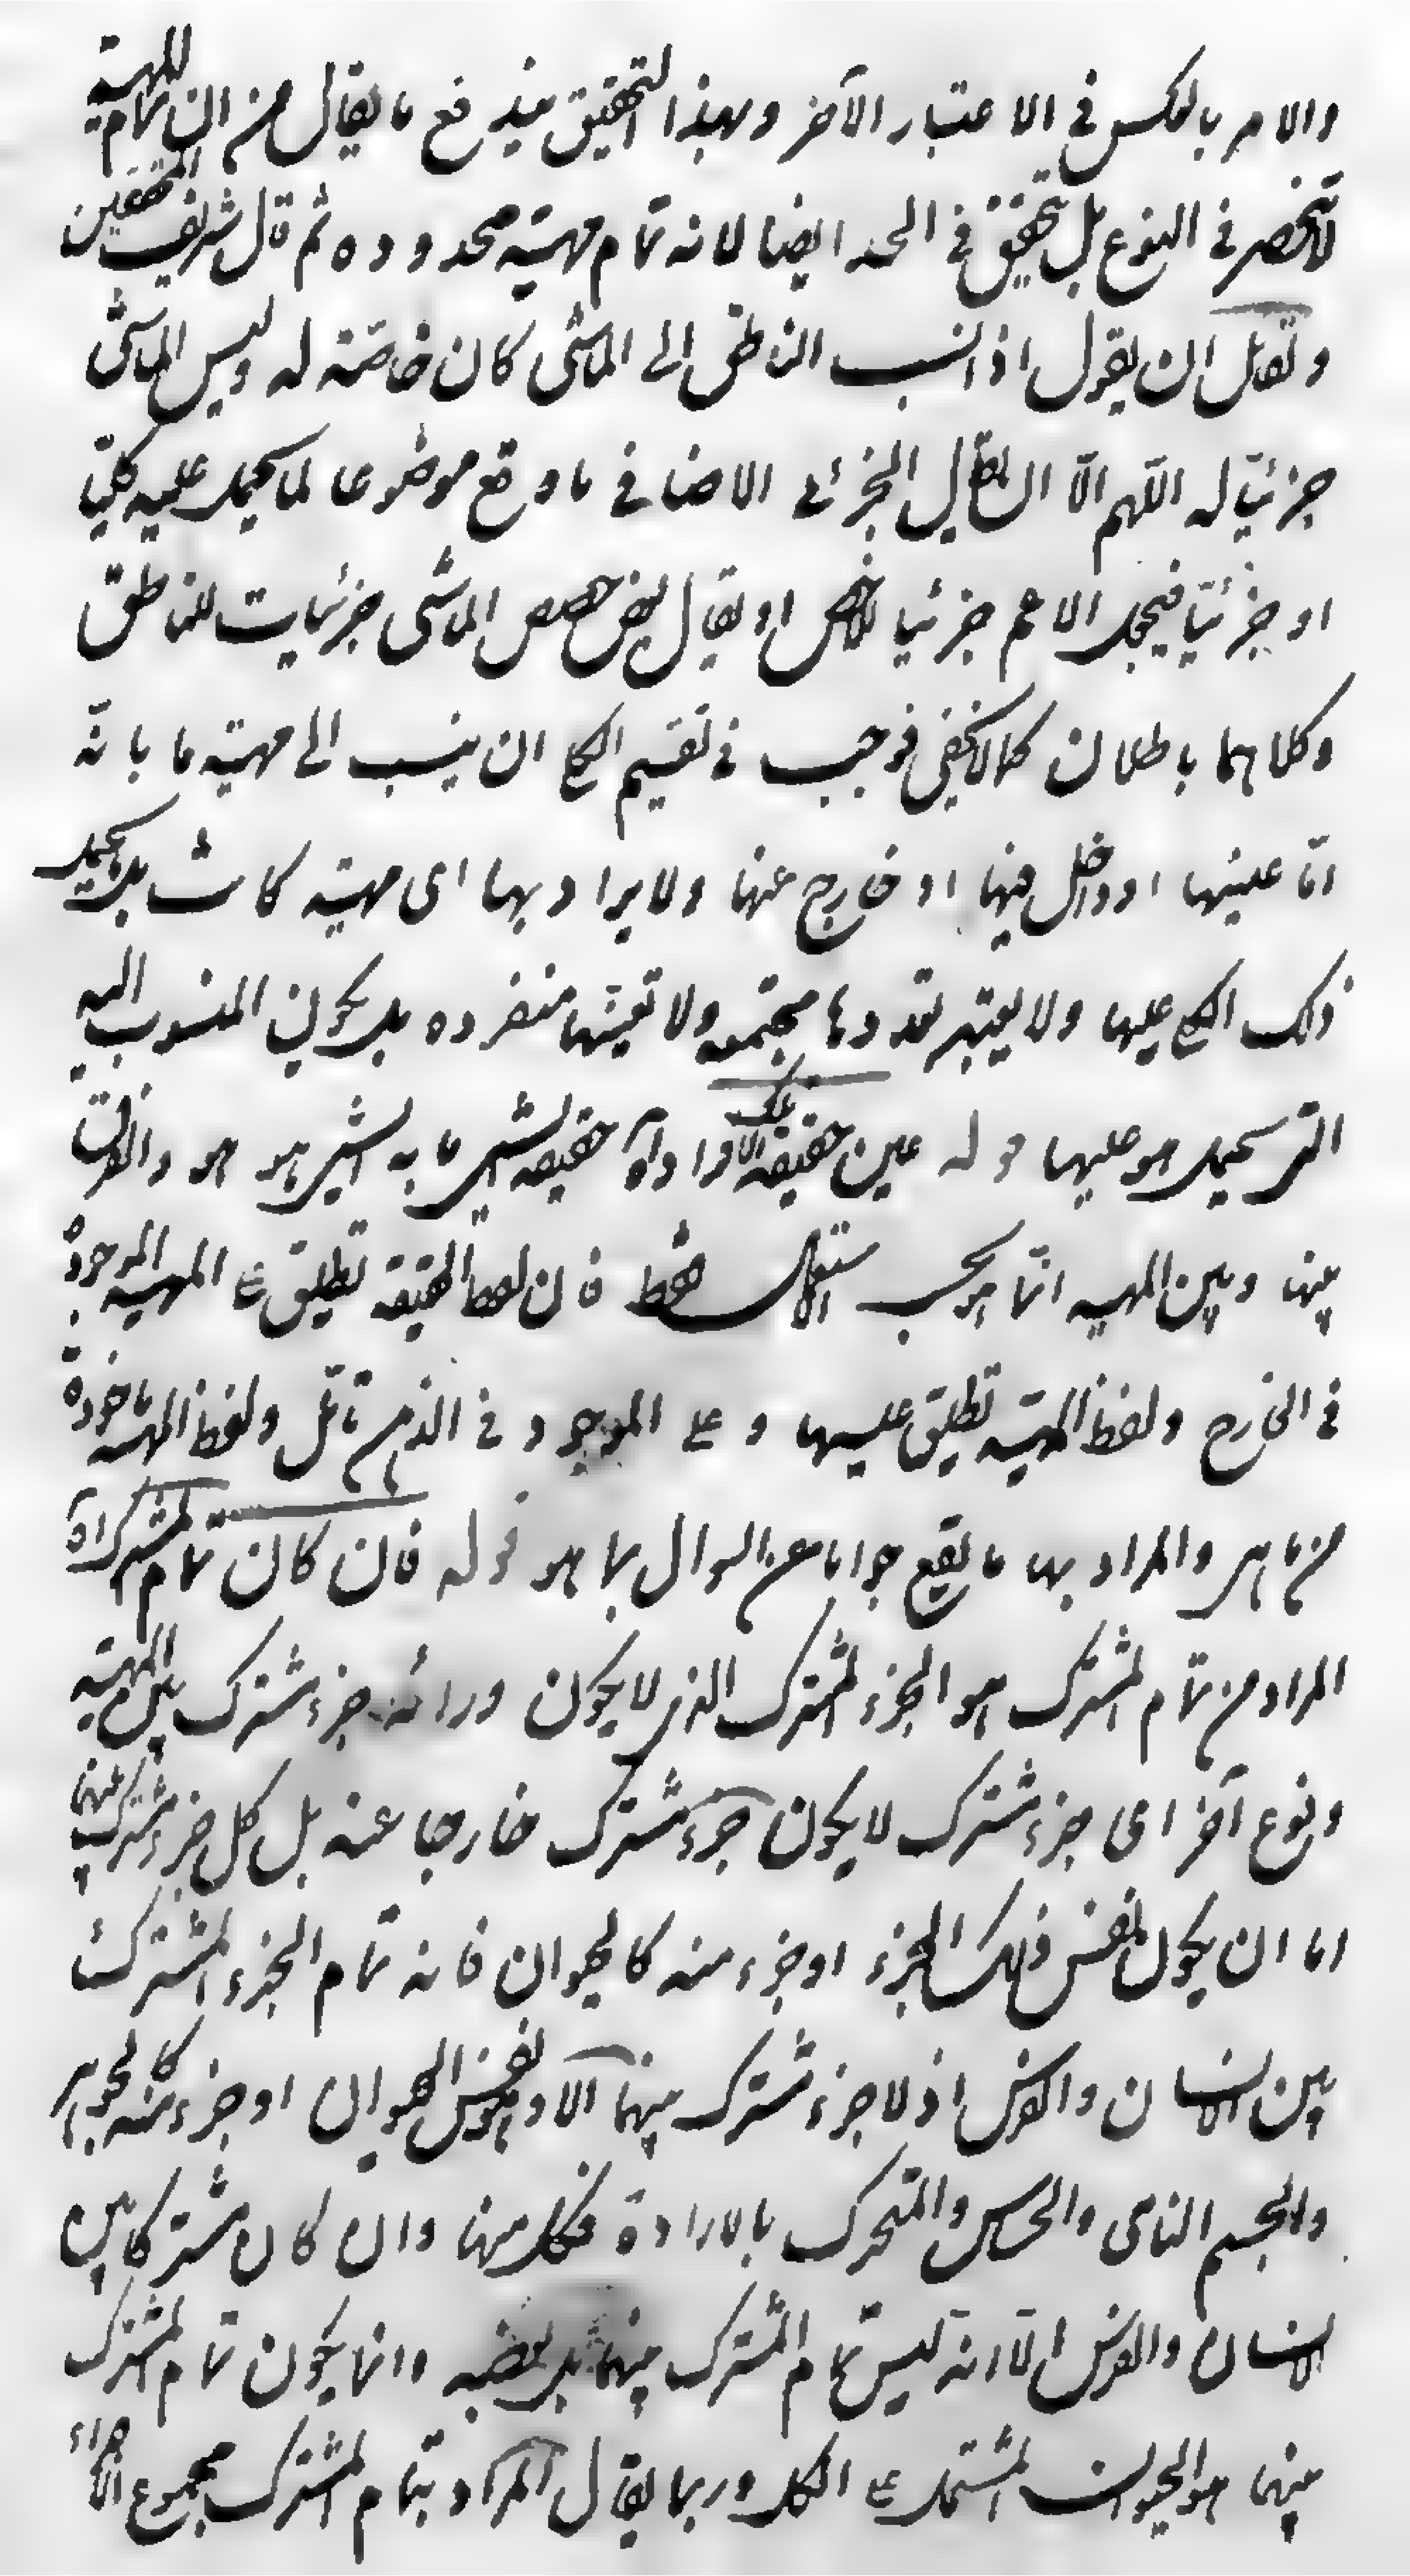 والامر بالعكس في الاعتبار الآخر وبهذا التحقيق يندفع ما يقال من ان تمام المهية
لا تنحصر في النوع بل تتحقق في الحد ايضا لانه تمام مهية محدوده ثم قال شريف المحققين
ولقائل ان يقول اذا نسب الناطق الى الماشى كان خاصة له وليس الماشى
جزئيا له اللهم الا ان يقال الجزئى الاضافي ما وقع موضوعا لما يحمل عليه كليا
او جزئيا فيجعل الاعم جزئيا للاخص او يقال بعض حصص الماشى جزئيات للناطق
وكلاهما باطلان كما لا يخفى فوجب في تقسيم الكلى ان ينسب الى مهية ما بانه
اما عينها او داخل فيها او خارج عنها ولا يراد بها اى مهية كانت بل ما يحمل
ذلك الكلى عليها ولا يعتبر تعددها مجتمعه ولا تعينها منفرده بل يكون المنسوب اليه
التى يحمل هو عليها قوله عين حقيقة تلك الافراد آه حقيقة الشىء ما به الشىء هو هو والفرق
بينها وبين المهيه انما هو بحسب الاستعمال فقط فان لفظ الحقيقة تطلق على المهيه الموجودة
في الخارج ولفظ المهية تطلق عليها وعلى الموجود في الذهن تأمل ولفظ المهية ماخوذة
من ما هى والمراد بها ما يقع جوابا عن السوال بما هو قوله فان كان تمام المشترك آه
المراد من تمام المشترك هو الجزء المشترك الذى لا يكون ورائه جزء مشترك بين المهية
ونوع آخر اى جزء مشترك لا يكون جزء مشترك خارجا عنه بل كل جزء مشترك بينهما
اما ان يكون نفس ذلك الجزء او جزء منه كالحيوان فانه تمام الجزء المشترك
بين الانسان والفرس اذ لا جزء مشترك بينهما الا وهو نفس الحيوان او جزء منه كالجوهر
والجسم النامى والحساس والمتحرك بالارادة فكل منها وان كان مشتركا بين
الانسان والفرس الا انه ليس تمام المشترك بينهما بل بعضه وانما يكون تمام المشترك
بينهما هو الحيوان المشتمل على الكل وربما يقال المراد بتمام المشترك مجموع الاجزاء